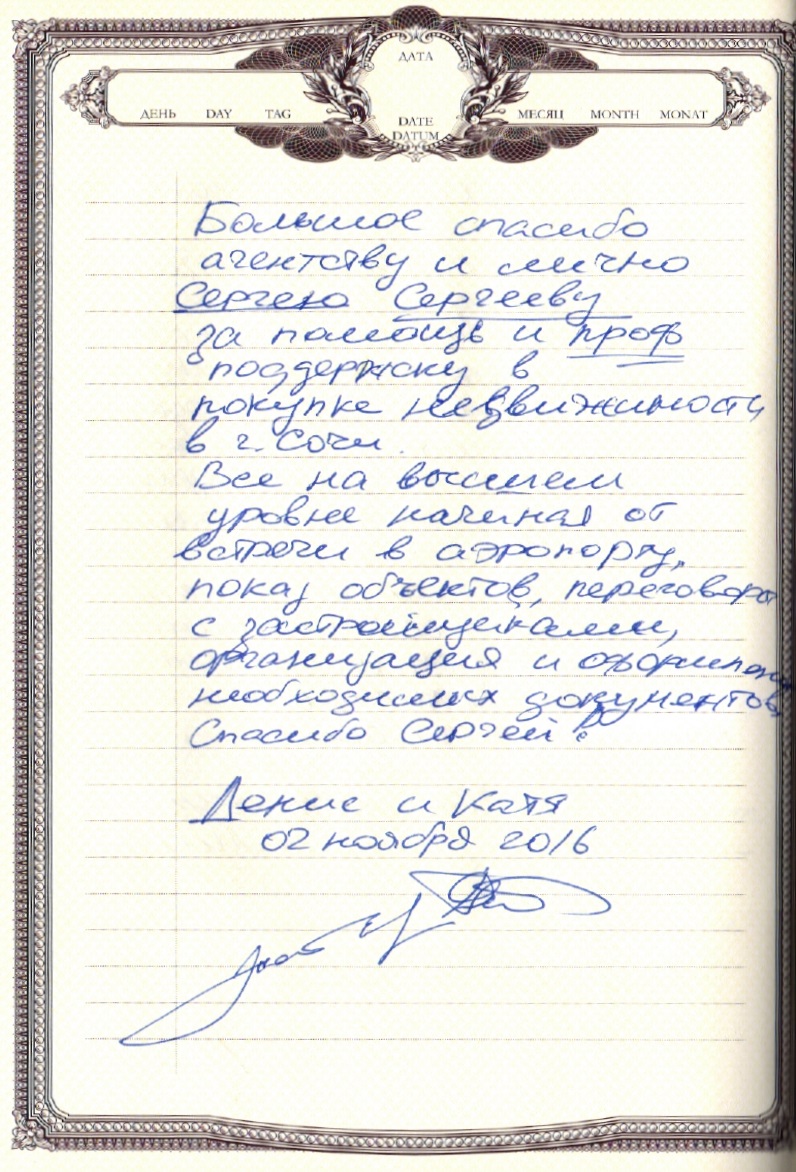 ДАТА
ДЕНЬ DAY TAG
DATE
DATUM
МЕСЯЦ MONTH MONAT
Большое спасибо
агентству и лично
Сергею Сергееву
за помощь и проф
поддержку в
покупке недвижимости
в г. Сочи.
Все на высшем
уровне начиная от
встречи в аэропорту,
показ объектов, переговоры
с застройщиками,
организация и оформление
необходимых документов.
Спасибо Сергей!
Денис и Катя
02 ноября 2016